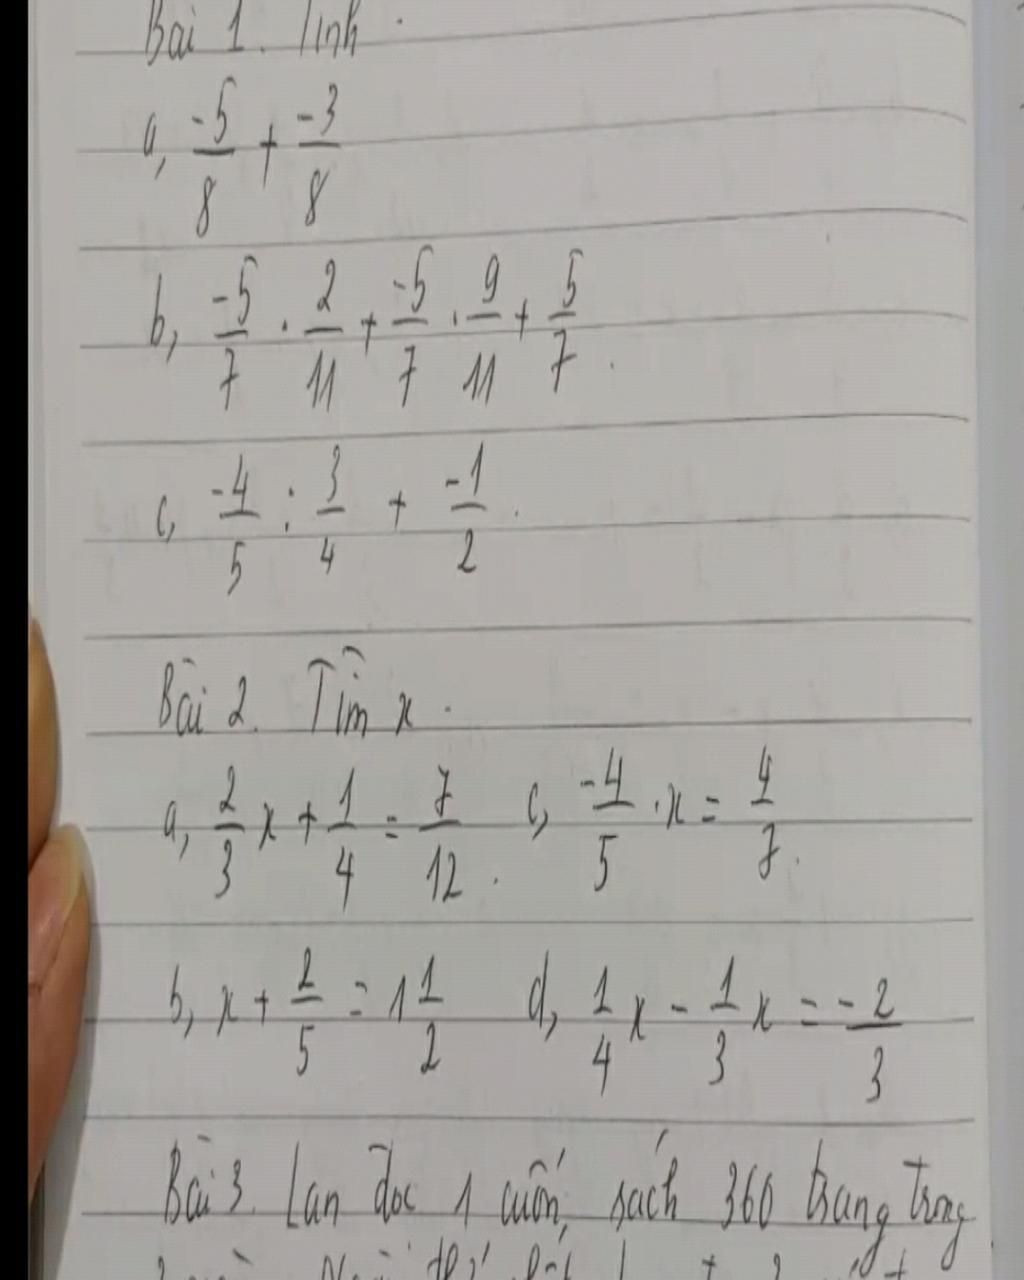 Bài 1. Tính
a, -5/8 + -3/8
b, -5/7 . 2/11 + -5/7 . 9/11 + 5/7
c, -4/5 : 3/4 + -1/2
Bài 2. Tìm x
a, 2/3 x + 1/4 = 7/12 c, -4/5 . x = 4/7
b, x + 2/5 = 1 1/2 d, 1/4 x - 1/3 x = -2/3
Bài 3. Lan đọc 1 cuốn sách 360 trang trong